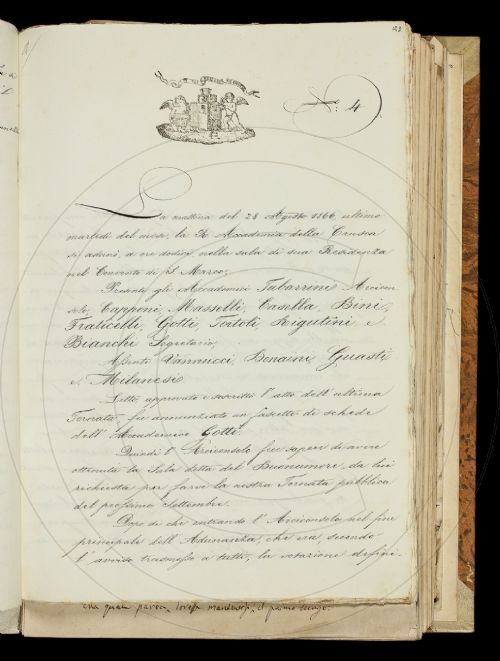 N.º 4
La mattina del 28 Agosto 1866, ultimo
martedì del mese, la R. Accademia della Crusca
si adunò, a ore dodici, nella sala di sua Residenza
nel Convento di S. Marco;
Presenti gli Accademici Tabarrini Arcicon
solo, Capponi, Masselli, Casella, Bini,
Fraticelli, Gotti, Tortoli, Rigutini e
Bianchi Segretario;
Assenti Vannucci, Bonaini, Guasti
e Milanesi.
Letto approvato e soscritto l'atto dell'ultima
Tornata, fu annunziato un fascetto di schede
dell'Accademico Gotti.
Quindi l'Arciconsolo fece sapere di avere
ottenuta la Sala detta del Buonumore, da lui
richiesta per farvi la nostra Tornata pubblica
del prossimo Settembre.
Dopo di che entrando l'Arciconsolo nel fine
principale dell'Adunanza, che era, secondo
l'avviso trasmesso a tutti, la votazione defini-
il primo luogo.